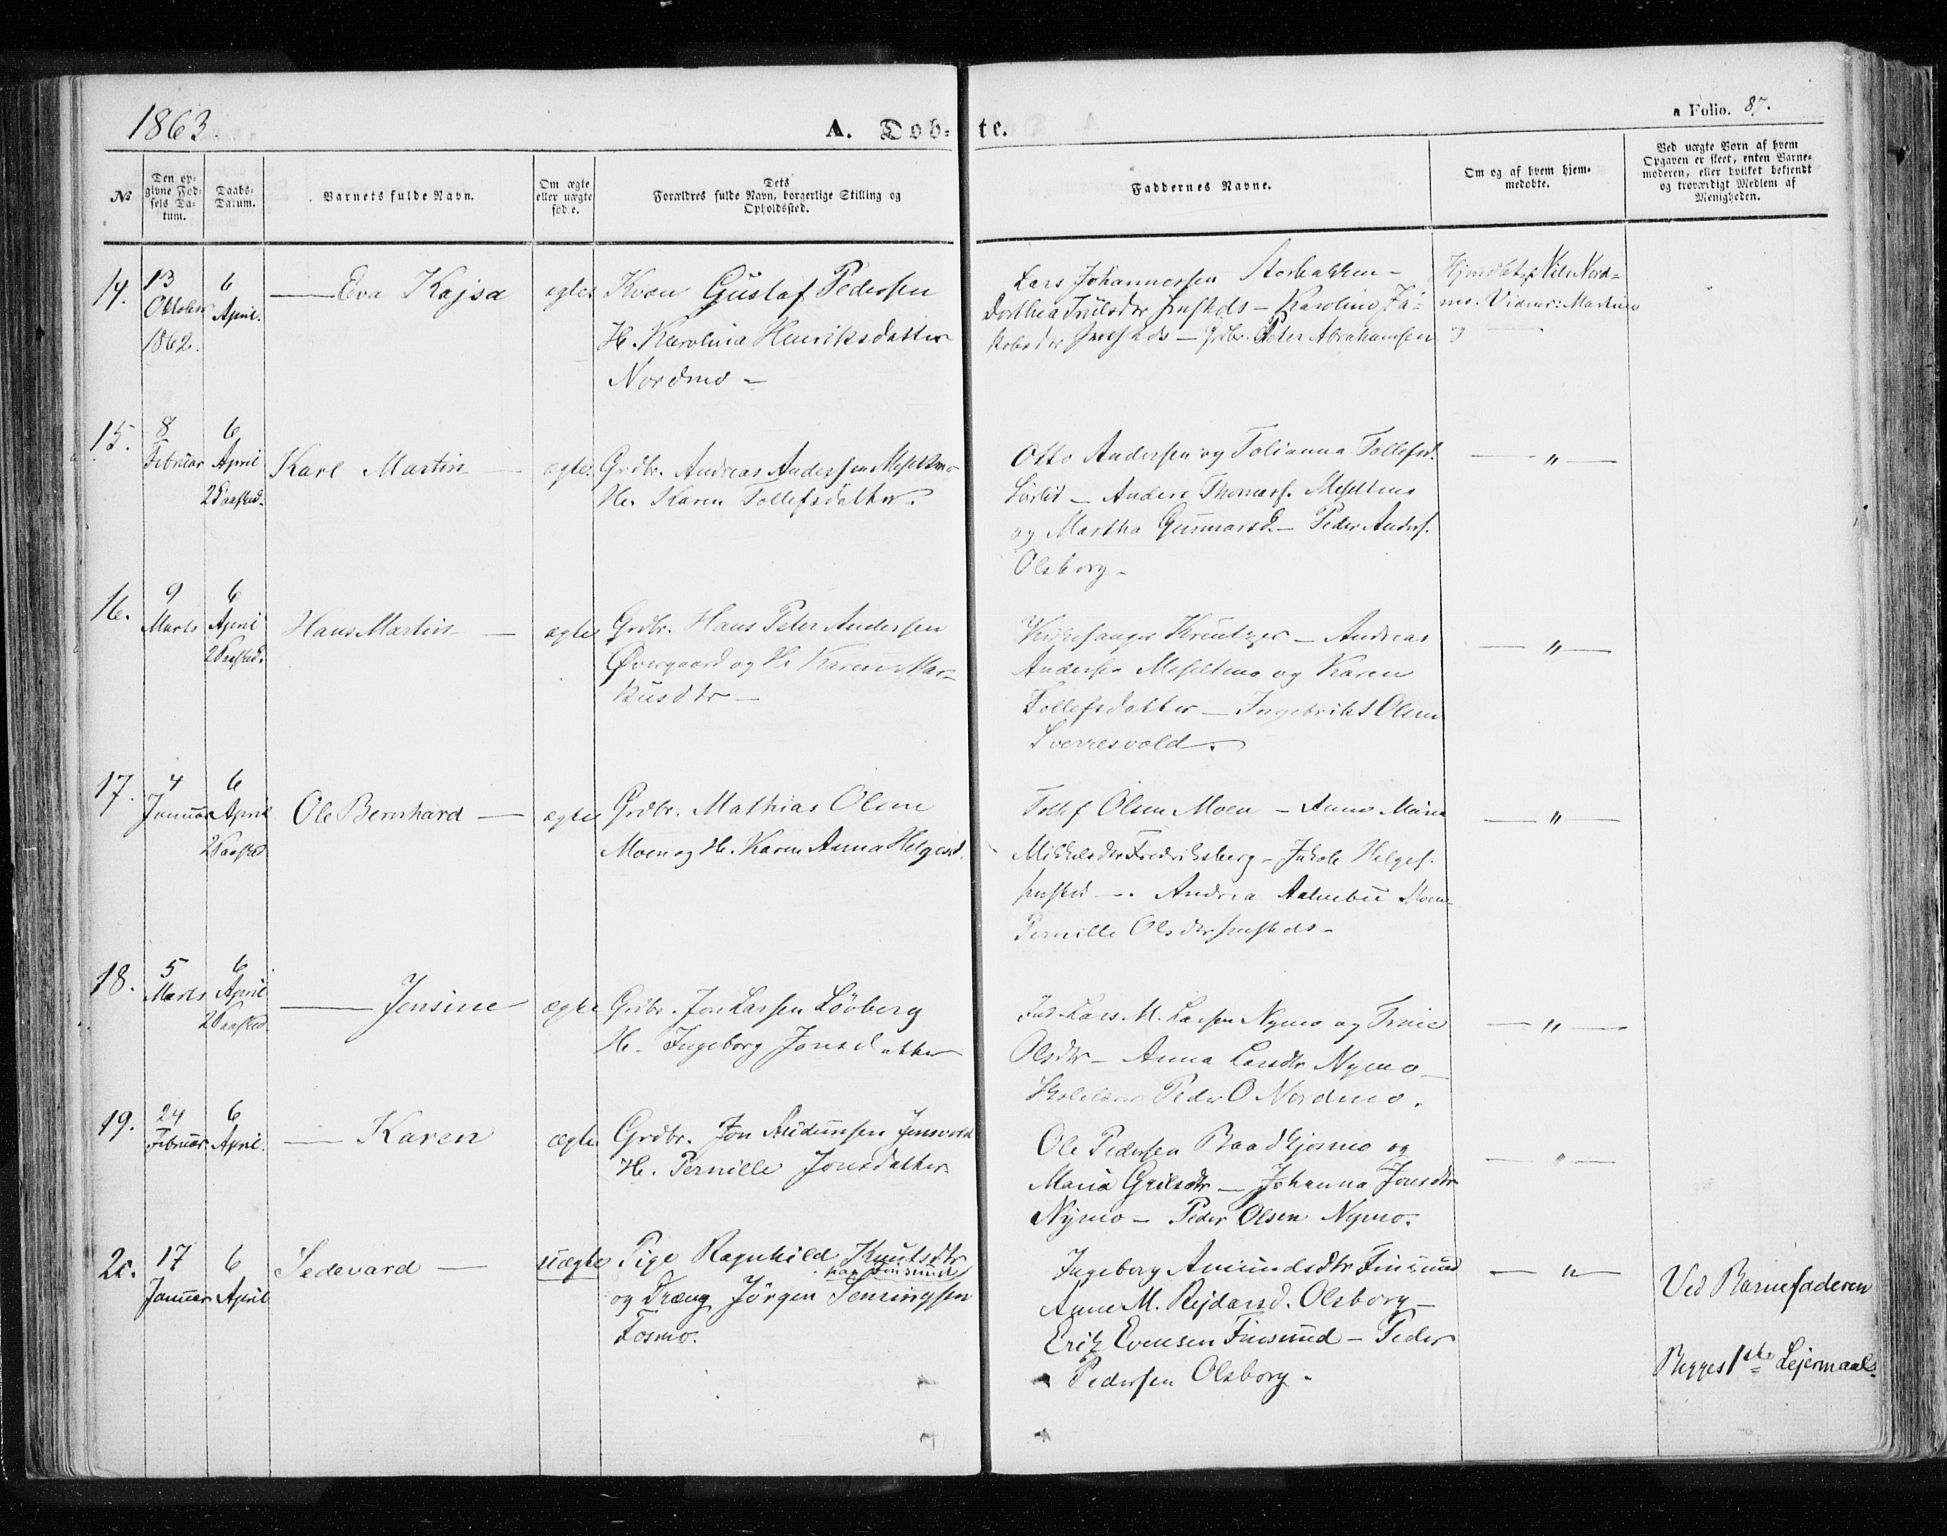 1863.
A. Døb-te.
a Folio. 87.
No
Den opgivne Fødsels Datum.
Daabs-Datum.
Barnets fulde Navn.
Om ægte eller uægte føde.
Dets Forældres fulde Navn, borgerlige Stilling og Opholdssted.
Faddernes Navne.
Om og af hvem hjemmedøbte.
Ved uægte Born af hvem Opgaven er skeet, enten Barnemoderen, eller hvilket bekjendt og troværdigt Medlem af Menigheden.
14.
13 Oktober 1862.
6 April.
Eva Kajsa
ægtes
Kvæn Gustaf Pedersen
H. Karolina Henriksdatter
Nordmo -
Lars Johannessen Storbakken -
Dorthea - Karoline Ja-
kobsdtr - Grdbr. Peter Abrahamsen
Hjemdøbt af Nils Nord-
mo. Vidner: Martin
og
15.
8 Februar
6 April
2 Paaskd.
Karl Martin
ægtes
Grdbr. Andreas Andersen Meseltmo
H. Karen Tollefsdatter.
Otto Andersen og Tolianna Tollefsd.
- Anders Thomass. Meseltmo
og Martha Gunnarsd. - Peder Anders.
Olsborg -
— " —
16.
9 Marts
6 April
2 Paaskd.
Hans Martin
ægtes
Grdbr. Hans Peter Andersen
Øvergaard og H. Karen Mar-
kusdtr -
Kirkesanger Kreutzer - Andreas
Andersen Meseltmo og Karen
Tollefsdatter - Ingebrikt Olsen
Sverresvold.
— " —
17.
4 Januar
6 April
2 Paaskd.
Ole Bernhard
ægte
Grdbr. Mathias Olsen
Moen og H. Karen Anna Helgesd.
Tollef Olsen Moen - Anne Maria
Mikkelsdtr Fredriksberg - Jakob Helges.
- Andrea Moen
Pernille Olsdtr
— " —
18.
5 Marts
6 April
2 Paaskd.
Jensine
ægte
Grdbr. Jon Larsen Løvberg
H. Ingeborg Jonsdatter
Lars M. Larsen Nymo og
Olsdtr - Anna Larsdtr Nymo -
Skolelærer Peder O Nordmo.
— " —
19.
24 Februar
6 April.
Karen
ægte
Grdbr. Jon Audunsen Jensvold
H. Pernille Jonsdatter
Ole Pedersen Baadkjosmo og
Maria - Johanna Jonsdtr
Nymo - Peder Olsen Nymo.
— " —
20.
17 Januar
6 April
Sedevard
uægte
Pige Ragnhild Knutsdtr
paa Finsund
og Dræng Jørgen Jensingsen
Fosmo.
Ingeborg Amundsdtr Finsund
Anne M. Rejdarsd. Olsborg -
Erik Evensen Finsund - Peder
Pedersen Olsborg.
— " —
Ved Barnefaderen
Begges 1ste Lejermaal.